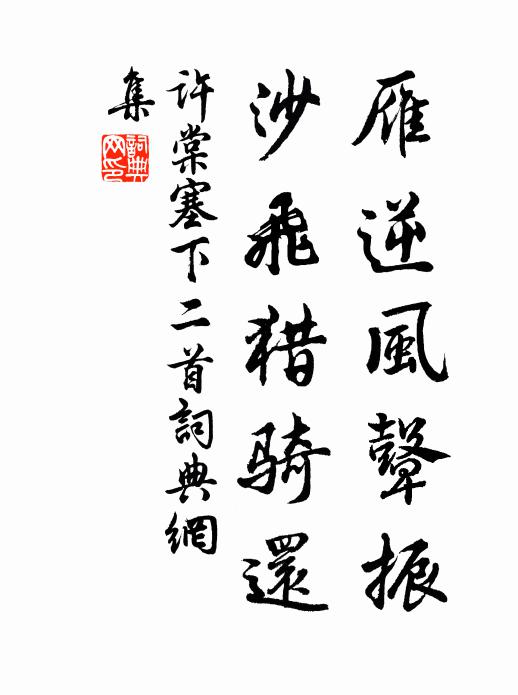 雁逆風鼙振
沙飛猎騎還
許棠塞下二首詞典網
集
詞典
网印